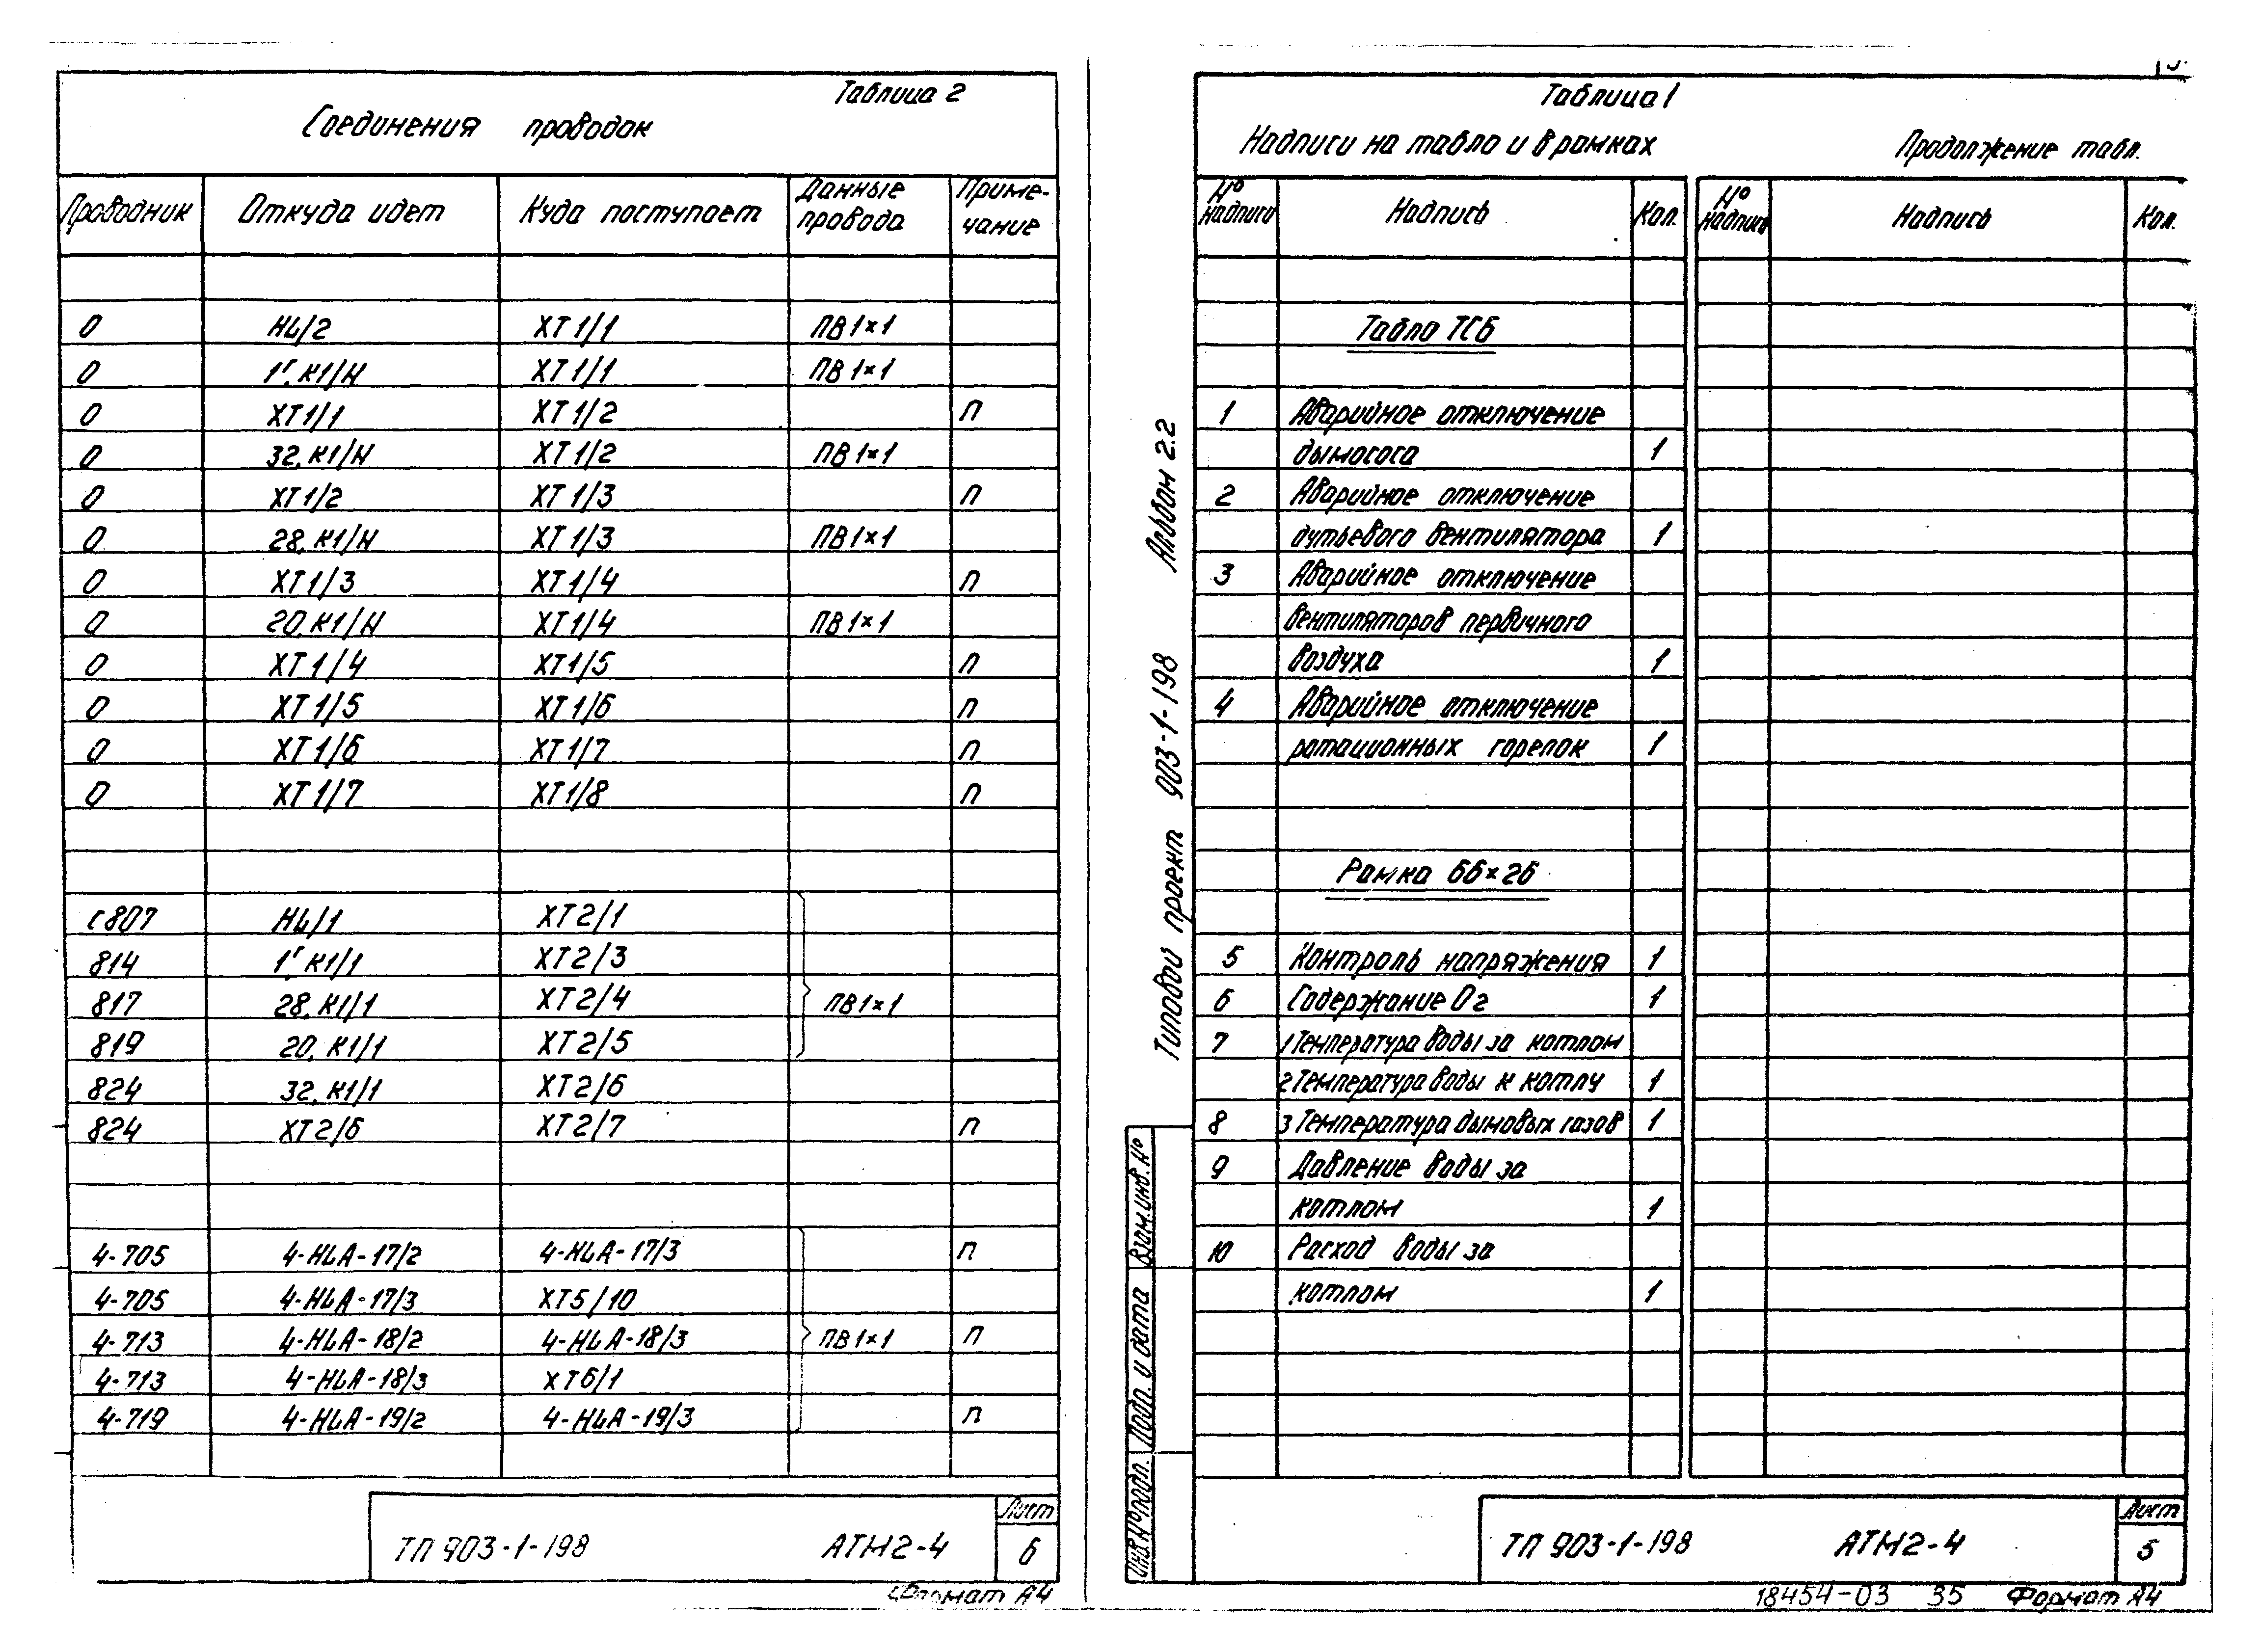 Таблица 2
Соединения проводок
Проводник Откуда идет Куда поступает Данные провода Приме-чание
0 HL/2 XT1/1 ПВ1×1
0 1г, К1/Н XT1/1 ПВ1×1
0 XT1/1 XT1/2 П
0 32, К1/Н XT1/2 ПВ1×1
0 XT1/2 XT1/3 П
0 28, К1/Н XT1/3 ПВ1×1
0 XT1/3 XT1/4 П
0 20, К1/Н XT1/4 ПВ1×1
0 XT1/4 XT1/5 П
0 XT1/5 XT1/6 П
0 XT1/6 XT1/7 П
0 XT1/7 XT1/8 П
с807 HL/1 XT2/1
814 1г, К1/1 XT2/3
817 28, К1/1 XT2/4 ПВ1×1
819 20, К1/1 XT2/5
824 32, К1/1 XT2/6
824 XT2/6 XT2/7 П
4-705 4-HLA-17/2 4-HLA-17/3 П
4-705 4-HLA-17/3 XT5/10
4-713 4-HLA-18/2 4-HLA-18/3 ПВ1×1 П
4-713 4-HLA-18/3 XT6/1
4-719 4-HLA-19/2 4-HLA-19/3 П
ТП 903-1-198 АТМ2-4 Лист 6
Формат А4
Таблица 1
Надписи на табло и в рамках
Продолжение табл.
№ надписи Надпись Кол. № надписи Надпись Кол.
Табло ТСБ
1 Аварийное отключение
дымососа 1
2 Аварийное отключение
дутьевого вентилятора 1
3 Аварийное отключение
вентиляторов первичного
воздуха 1
4 Аварийное отключение
ротационных горелок 1
Рамка 66×26
5 Контроль напряжения 1
6 Содержание О2 1
7 1 Температура воды за котлом
2 Температура воды к котлу 1
8 3 Температура дымовых газов 1
9 Давление воды за
котлом 1
10 Расход воды за
котлом 1
Типовой проект 903-1-198 Альбом 2.2
Инв. № подл. Подп. и дата Взам. инв. №
ТП 903-1-198 АТМ2-4 Лист 5
18454-03 35 Формат А4